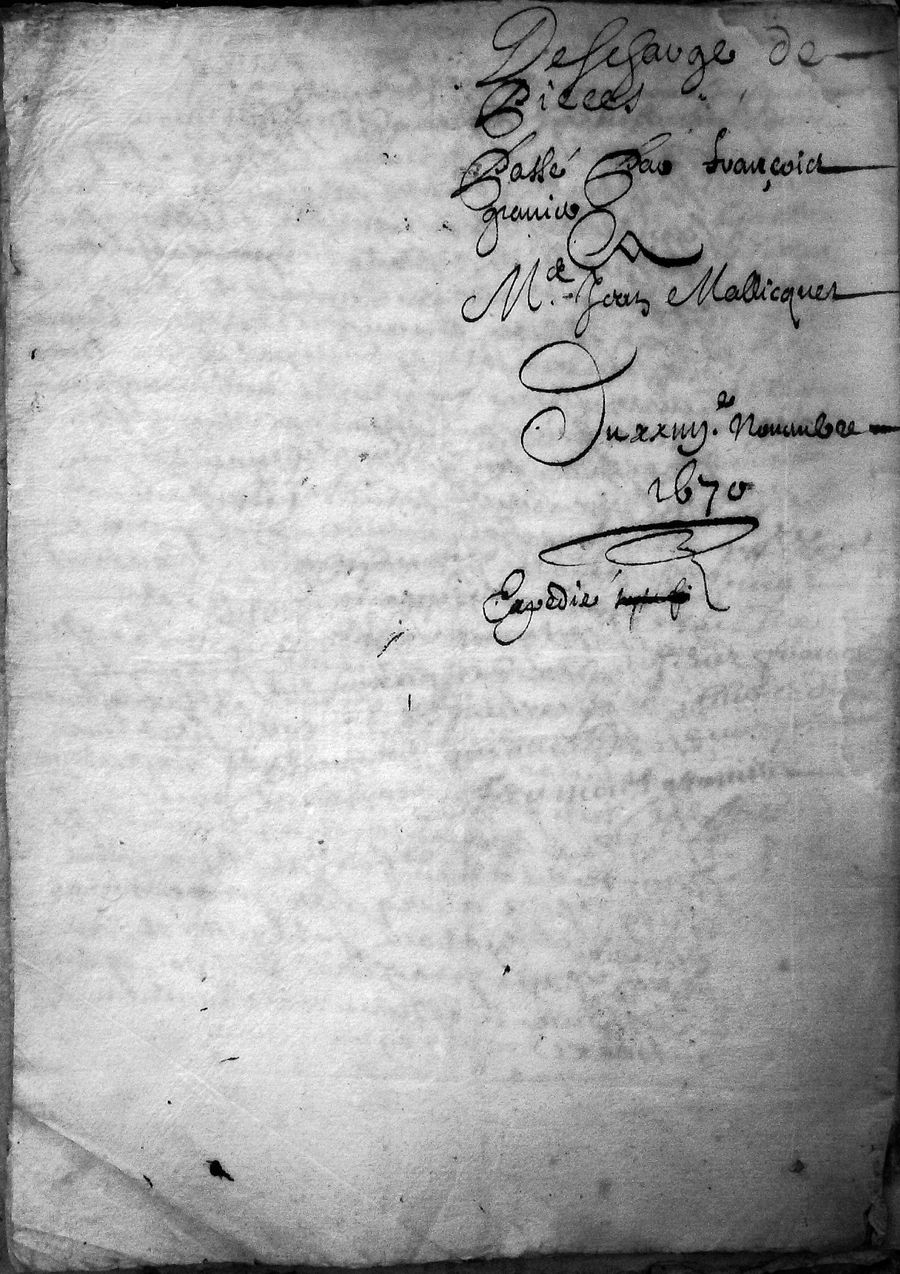 Descharge de
Pieces
Passé Par François
granier
A
Mᵉ. Jean Mallicques
Du xxiiij.ᵉ Novembre
1670
Expedié